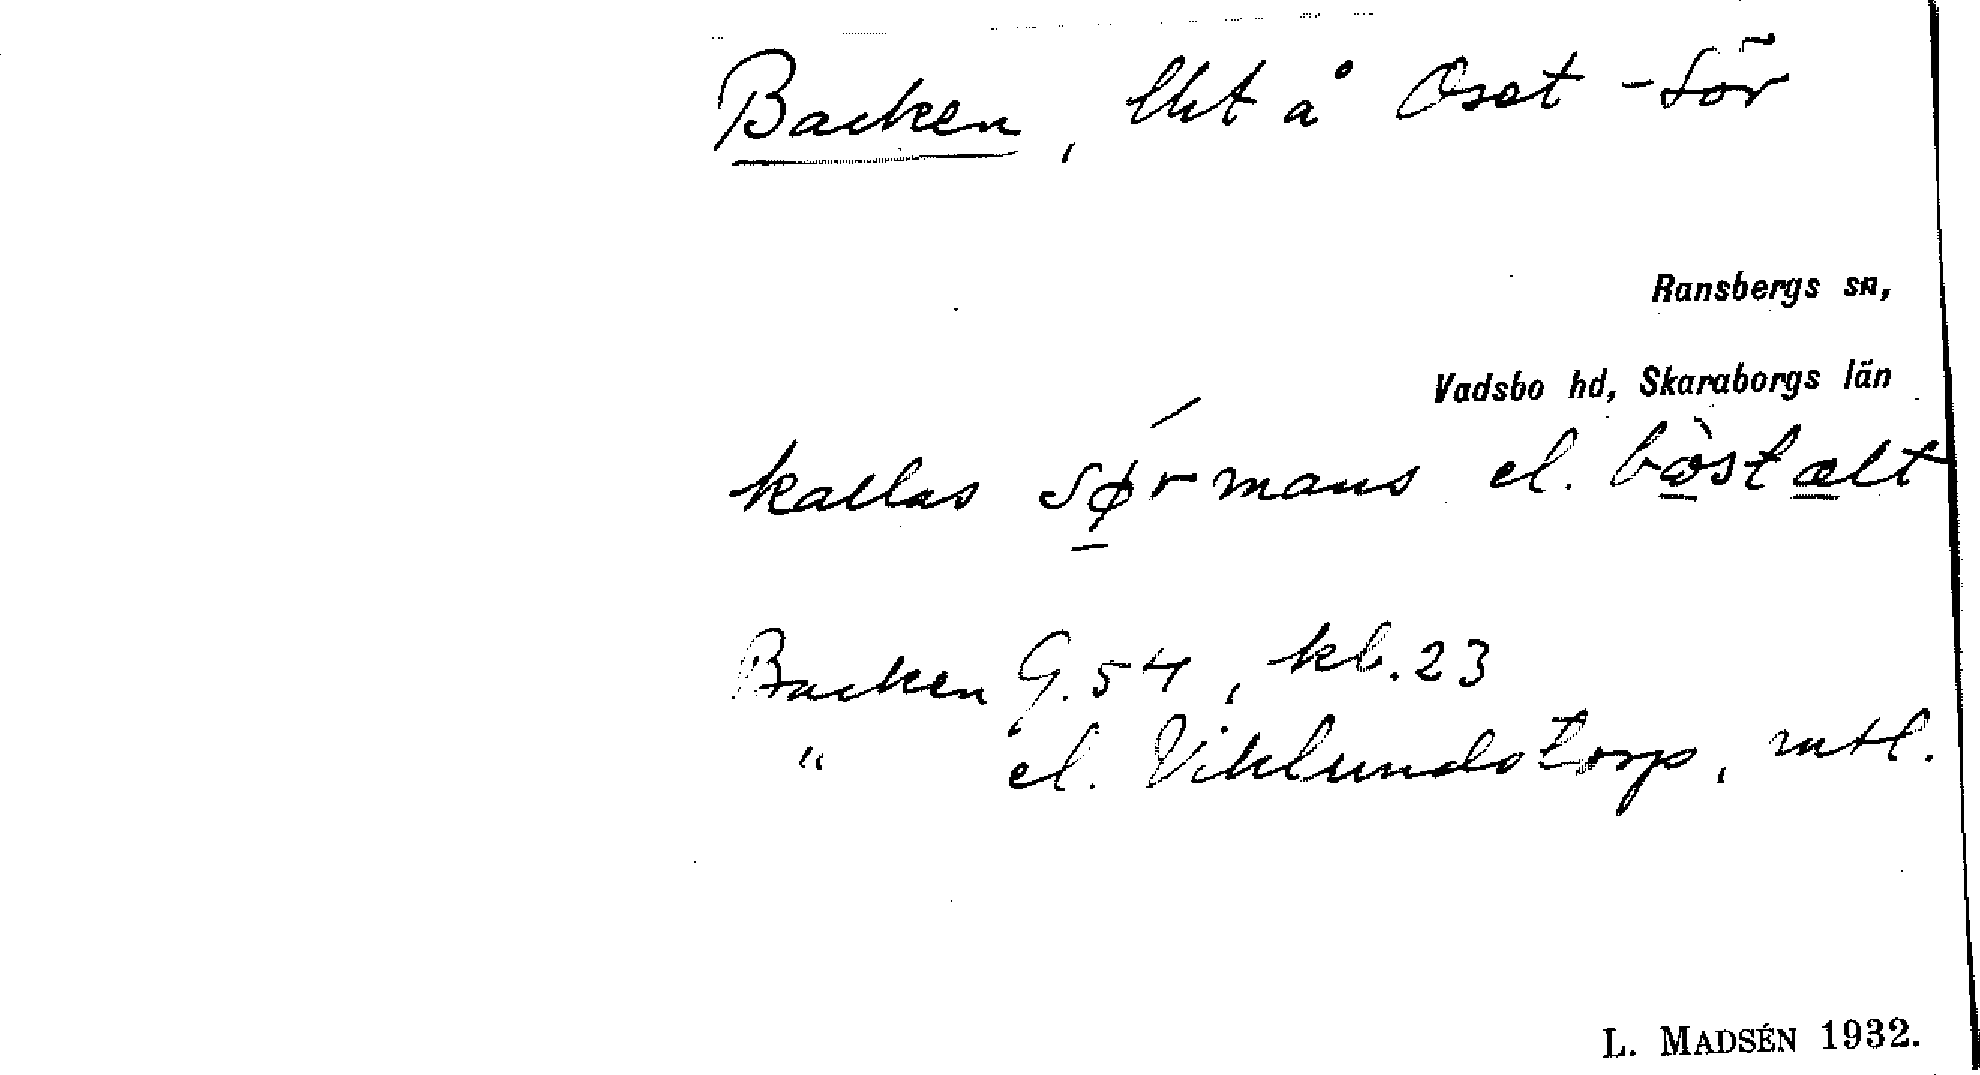 Backen, lht å Oset - Sör
Ransbergs sn,
Vadsbo hd, Skaraborgs län
kallas sǿ̱rmans el. bò̱stæ̱lt
Backen G. 54, kb. 23
" el. Viklundstorp, mtl.
L. MADSÉN 1932.